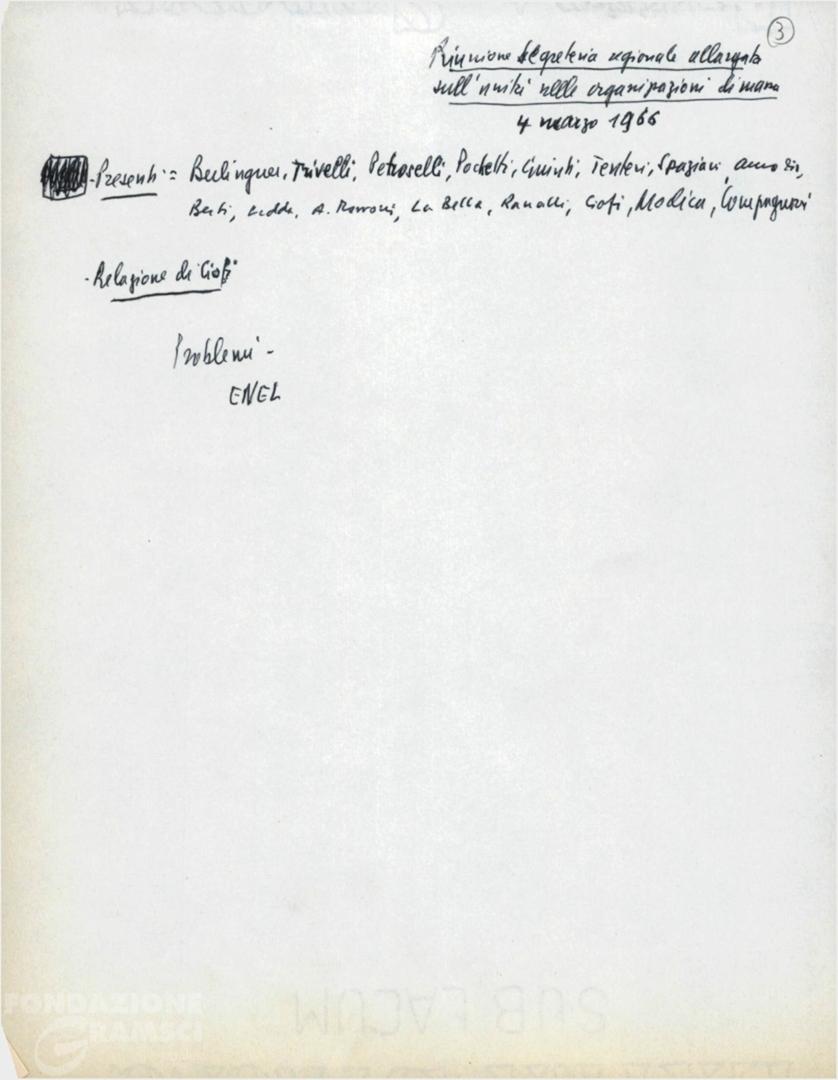 3
Riunione Segreteria regionale allargata
sull'unità nelle organizzazioni di massa
4 marzo 1966
- Presenti = Berlinguer, Trivelli, Petroselli, Pochetti, Giunti, Tenteri, Spaziani,
Berti, Ledda, A. Marroni, La Bella, Ranalli, Ciofi, Modica, Compagnoni
- Relazione di Ciofi
Problemi -
ENEL
FONDAZIONE
GRAMSCI